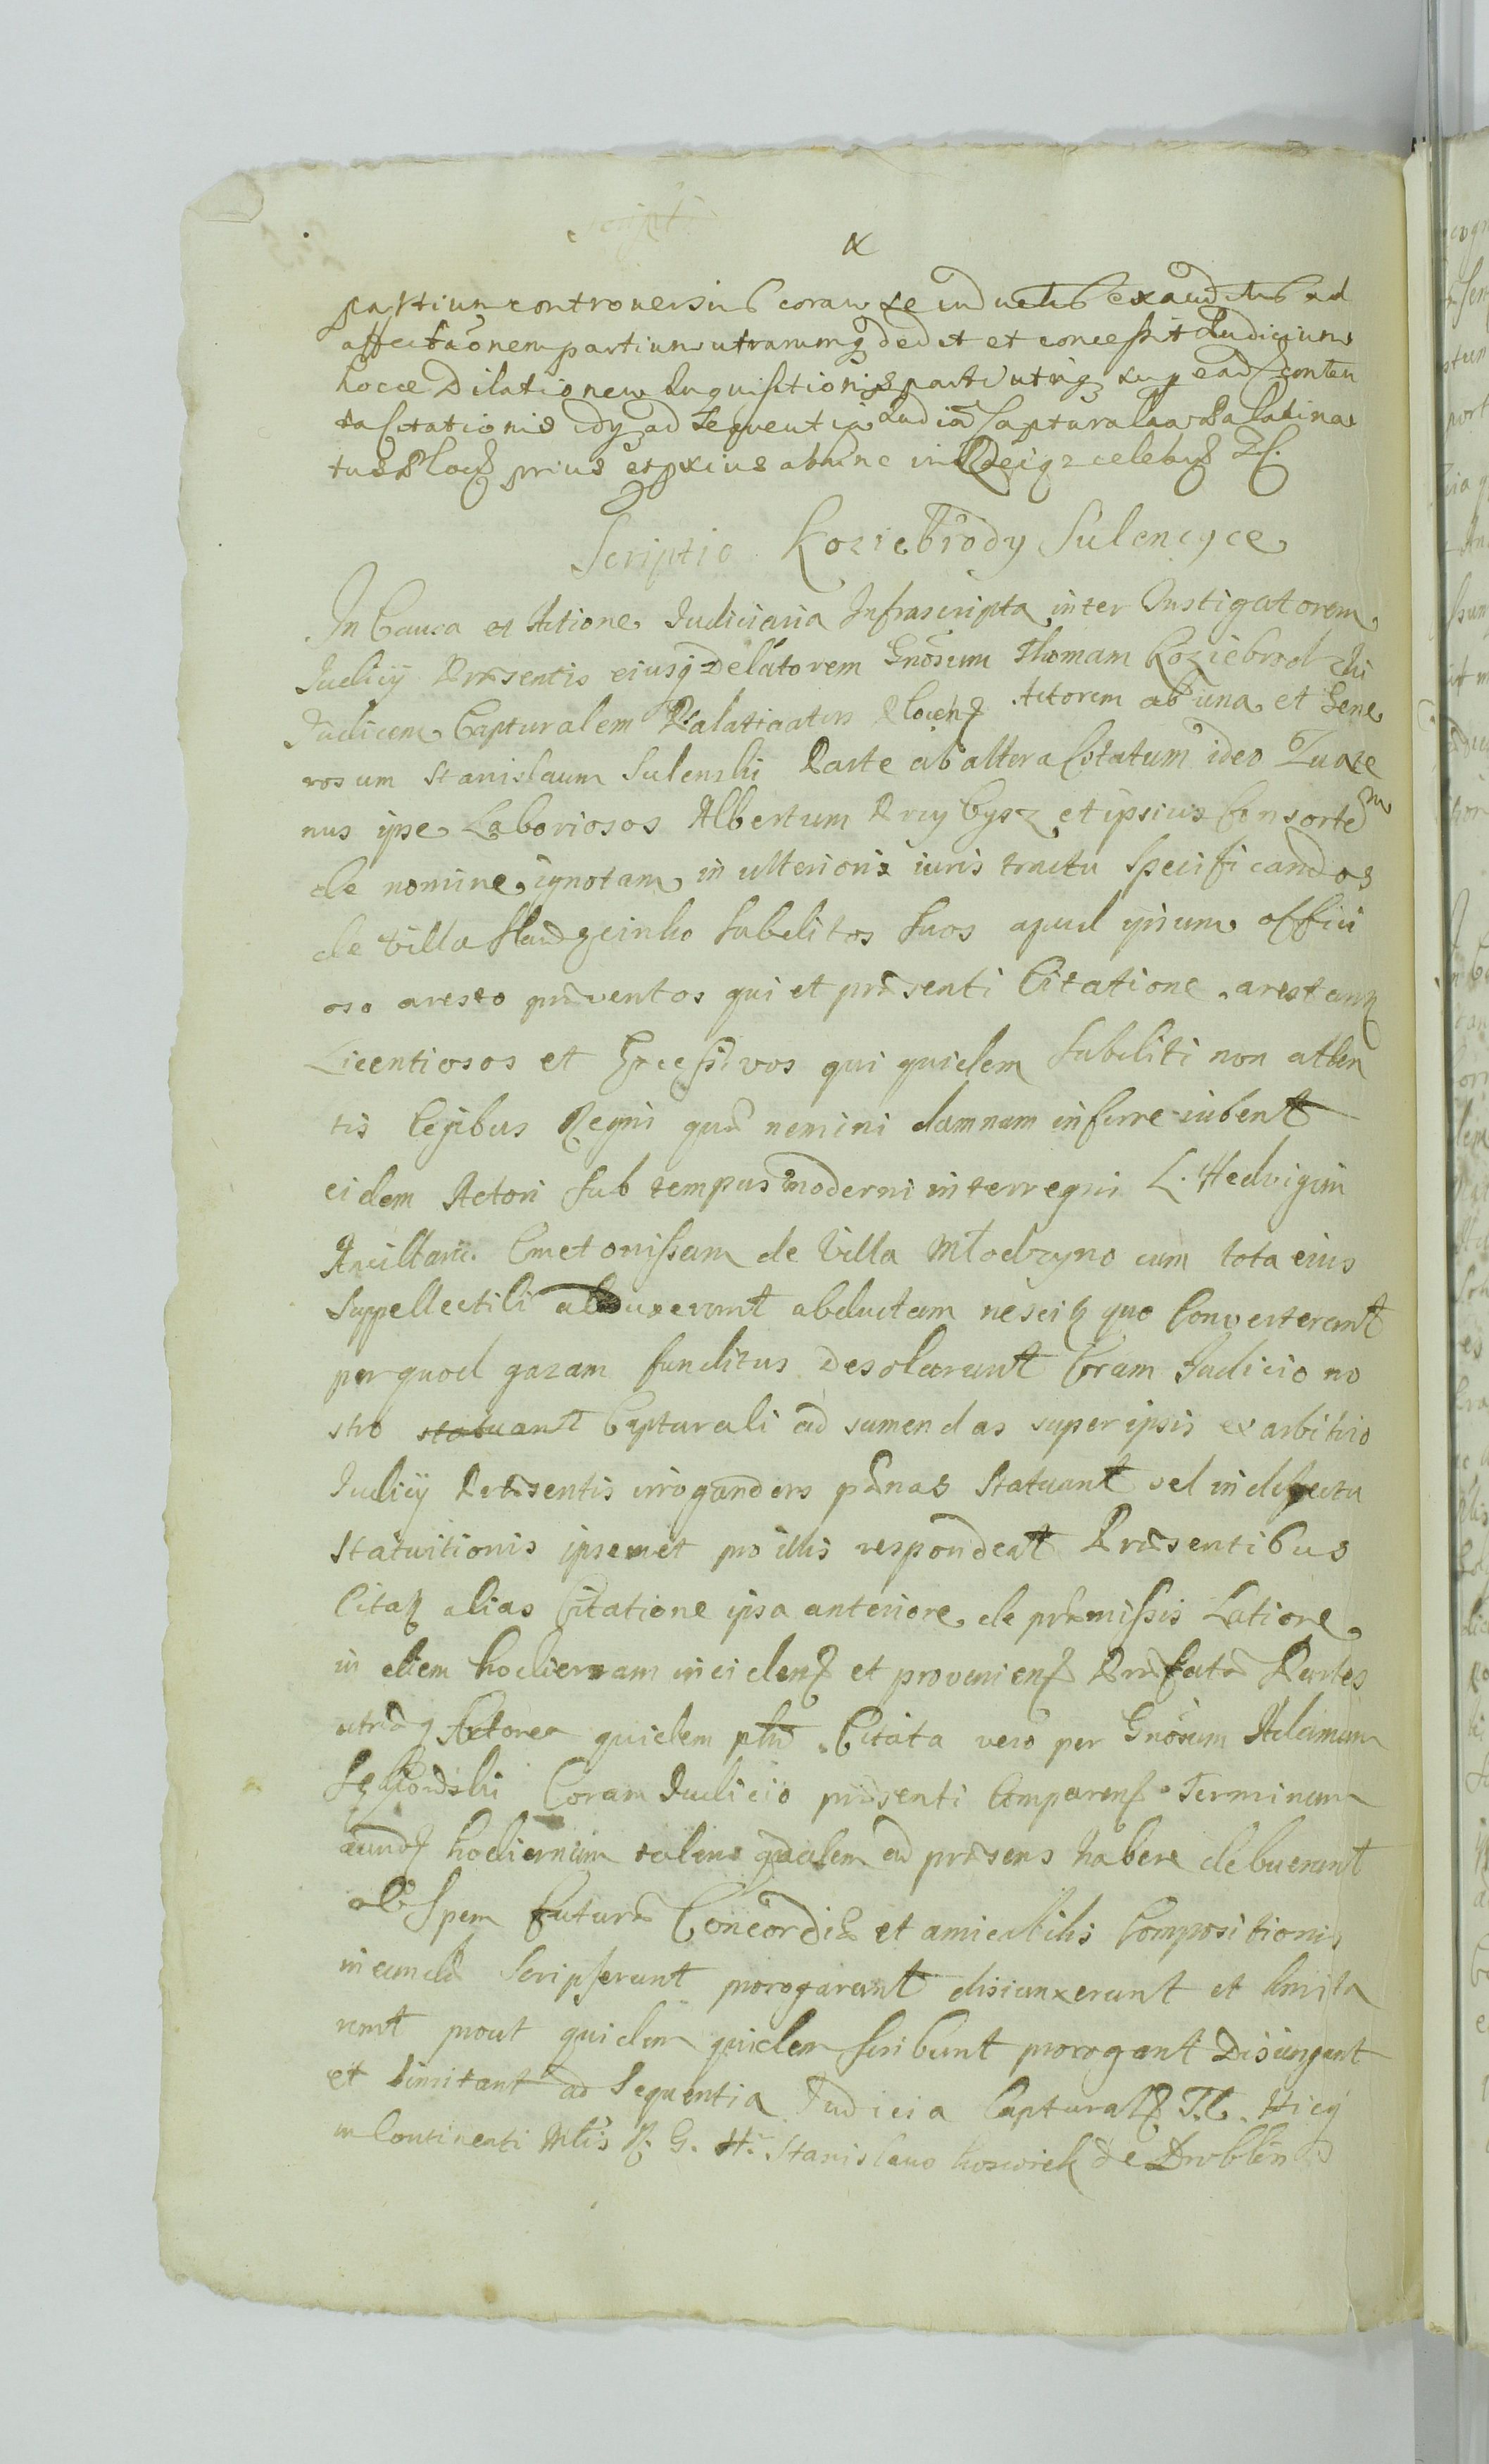 partium controversiis coram se inductis exauditis ad
affectaõnem partium utrarumq dedit et concessit Judicium
hocce Dilationem Inquisitionis parti utriq sup ead conten
ta Citationis idq ad sequentia Judicia Capturalia Palatina
tus Plocen prius et pxius abhinc in celebr
Scriptio Koziebrody Sulencyce
In Causa et Actione Judiciaria Infrascripta inter Instigatorem
Judicij Præsentis eiusq Delatorem Gnosum Thomam Koziebrodzki
Judicem Capturalem Palatinatus Plocen Actorem ab una et Gene
rosum Stanislaum Sulenski Parte ab altera Citatum ideo Quate
nus ipse Laboriosos Albertum Przybysz et ipsius Consortem
de nomine ignotam in ulterioris iuris tractu specificandos
de Villa subditos suos apud ipsum offici
oso aresto præventos qui et præsenti Citatione arestant
Licentiosos et Excessivos qui quidem subditi non atten
tis legibus Regni quæ nemini damnum inferre iubent
eidem Actori sub tempus moderni interregni L. Hedvigim
Ancillam Cmetonissam de Villa Młodzyno cum tota eius
suppellectili abduxerunt abductam nescit quo Converterunt
per quod gazam funditus desolarunt Coram Judicio no
stro statuant Capturali ad sumendas super ipsis ex arbitrio
Judicij Præsentis irrogandas pænas statuant vel in defectu
statuitionis ipsemet pro illis respondeat Præsentibus
Citat alias Citatione ipsa anteriore de præmissis Latiore
in diem hodiernam inciden et provenien Præfatæ Partes
utræq Actorea quidem plr Citata vero per Gnosum Adamum
Coram Judicio præsenti Comparen Terminum
eund hodiernum talem qualem ad præsens habere debuerunt
ob spem futuræ Concordiæ et amicabilis Compositionis
ineundæ scripserunt prorogarunt disiunxerunt et limita
runt prout quidem quidem scribunt prorogant Disiungunt
et limitant ad sequentia Judicia Capturali T. C.
in Continenti Mtis R. G. Stanislavo de Droblin